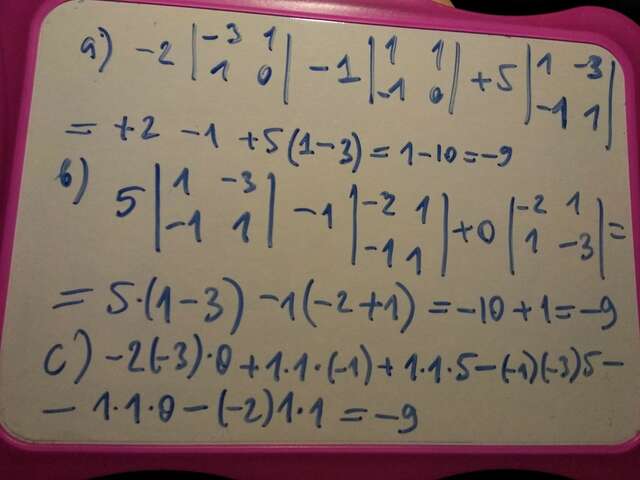 a) -2 |-3 1| -1 |1 1| +5 |1 -3|
|1 0| |-1 0| |-1 1|
= +2 -1 +5(1-3) = 1-10 = -9
b) 5 |1 -3| -1 |-2 1| +0 |-2 1| =
|-1 1| |-1 1| |1 -3|
= 5·(1-3) -1(-2+1) = -10+1 = -9
c) -2(-3)·0 + 1·1·(-1) + 1·1·5 - (-1)(-3)5 -
- 1·1·0 - (-2)1·1 = -9